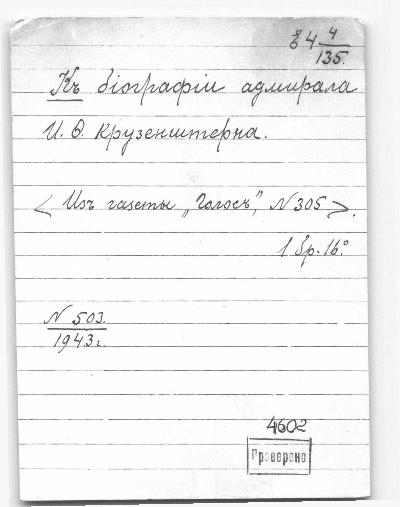 84 4/135.
Къ біографіи адмирала
И. Ѳ. Крузенштерна.
< Изъ газеты „Голосъ", N 305 >.
1 бр. 16°
N 503.
1943 г.
4602
Проверено